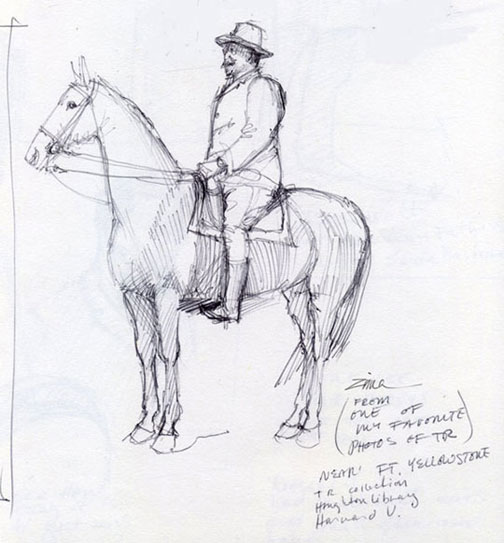 Zina
(FROM
ONE OF
MY FAVORITE
PHOTOS OF TR)
NEAR FT. YELLOWSTONE
TR collection
Houghton Library
Harvard U.